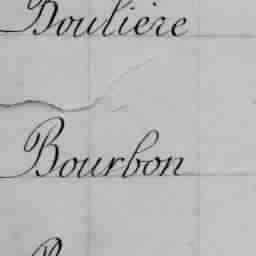 Boulière
Bourbon